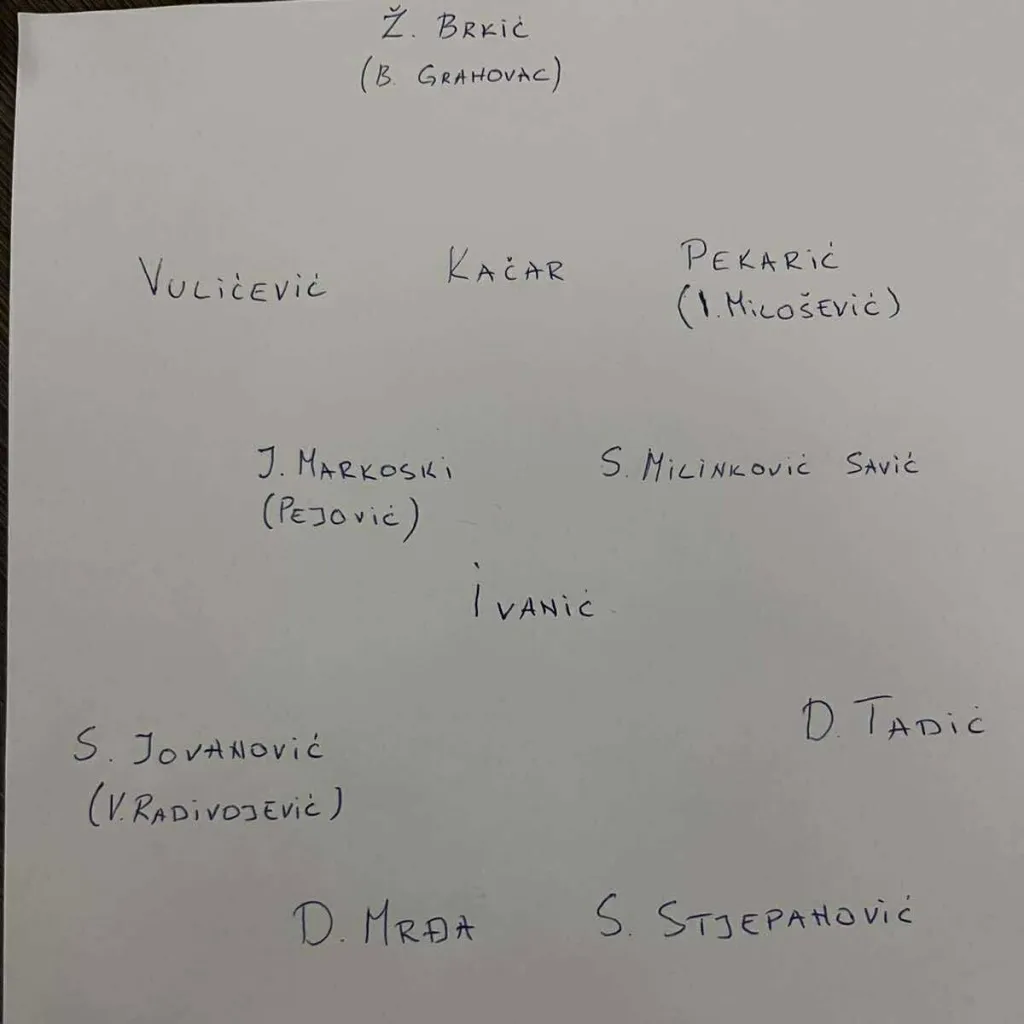 Ž. BRKIĆ
(B. GRAHOVAC)
VULIĆEVIĆ
KAČAR
PEKARIĆ
(I. MILOŠEVIĆ)
J. MARKOSKI
(PEJOVIĆ)
S. MILINKOVIĆ SAVIĆ
IVANIĆ
D. TADIĆ
S. JOVANOVIĆ
(V. RADIVOJEVIĆ)
D. MRĐA
S. STJEPANOVIĆ